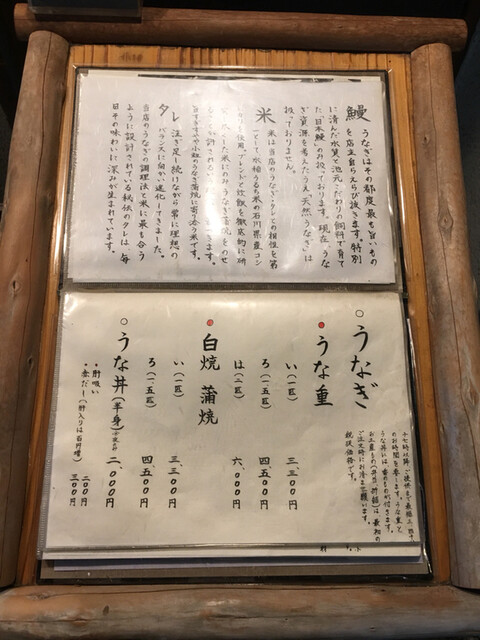 鰻 うなぎはその都度最も旨いもの
を店主自らえらび抜きます。特別
に清んだ水質と池元こだわりの飼料で育て
た「日本鰻」のみ扱っております。現在、うな
ぎ資源を考えたうえ「天然うなぎ」は
扱っておりません。
米 米は当店のうなぎ・タレとの相性を第
一として水稲うるち米の石川県産コシ
ヒカリを使用。ブレンドと炊飯を徹底的に研
タレ 注ぎ足し続けながら常に理想の
バランスに向かい進化してきました。
当店のうなぎの調理法と米に最も合う
ように設計されている秘伝のタレは、毎
日その味わいに深みが生まれています。
○うなぎ
●うな重
い(一匹) 三、三〇〇円
ろ(一、五匹) 四、五〇〇円
は(二匹) 六、〇〇〇円
●白焼 蒲焼
い(一匹) 三、三〇〇円
ろ(一、五匹) 四、五〇〇円
○うな丼(半身) 二、〇〇〇円
・肝吸い 二〇〇円
・赤だし(肝入りは百円増) 三〇〇円
税抜価格です。